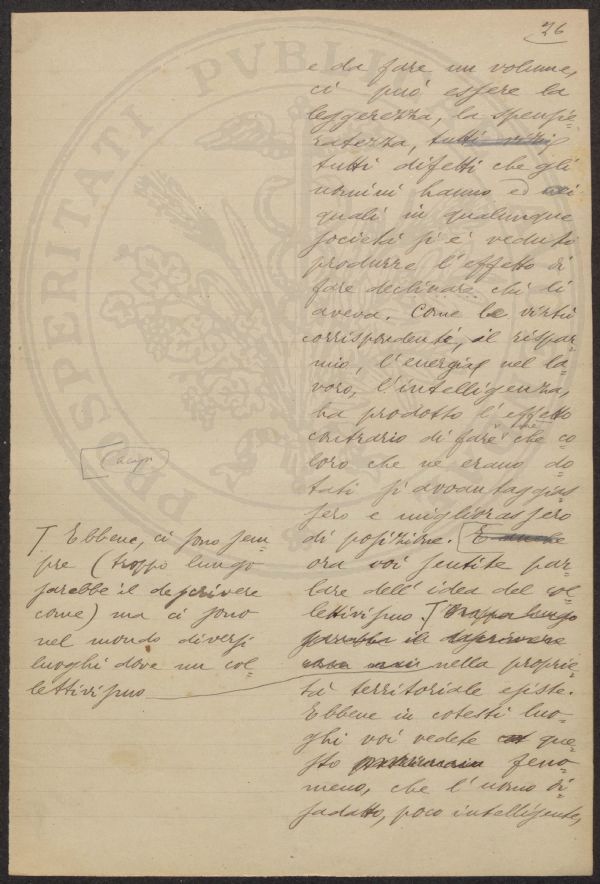 26
e da fare un volume,
ci può essere la
leggerezza, la spensie-
ratezza, tutti vizi
tutti difetti che gli
uomini hanno ed nei
quali in qualunque
società si è veduto
produrre l'effetto di
fare declinare chi li
aveva. Come le virtù
corrispondenti, il rispar-
mio, l'energia nel la-
voro, l'intelligenza,
ha prodotto l'effetto
contrario di fare che co
loro che ne erano do-
tati si avvantaggias
sero e migliorassero
di posizione. E anche
ora voi sentite par-
lare dell'idea del col-
lettivismo. T troppo lungo
sarebbe il descrivere
nella proprie-
tà territoriale esiste.
Ebbene in cotesti luo-
ghi voi vedete que-
sto feno-
meno, che l'uomo di-
sadatto, poco intelligente,
T Ebbene, ci sono sem-
pre (troppo lungo
sarebbe il descrivere
come) ma ci sono
nel mondo diversi
luoghi dove un col-
lettivismo
PROSPERITATI PVBLICAE